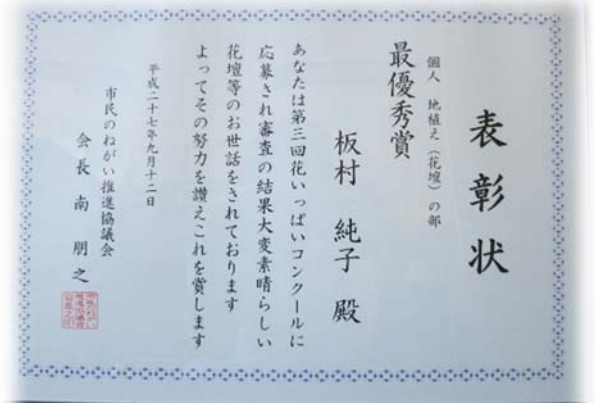 表彰状
個人 地植え（花壇）の部
最優秀賞
板村 純子 殿
あなたは第三回花いっぱいコンクールに
応募され審査の結果大変素晴らしい
花壇等のお世話をされております
よってその努力を讃えこれを賞します
平成二十七年九月十二日
市民のねがい推進協議会
会長 南 朋之